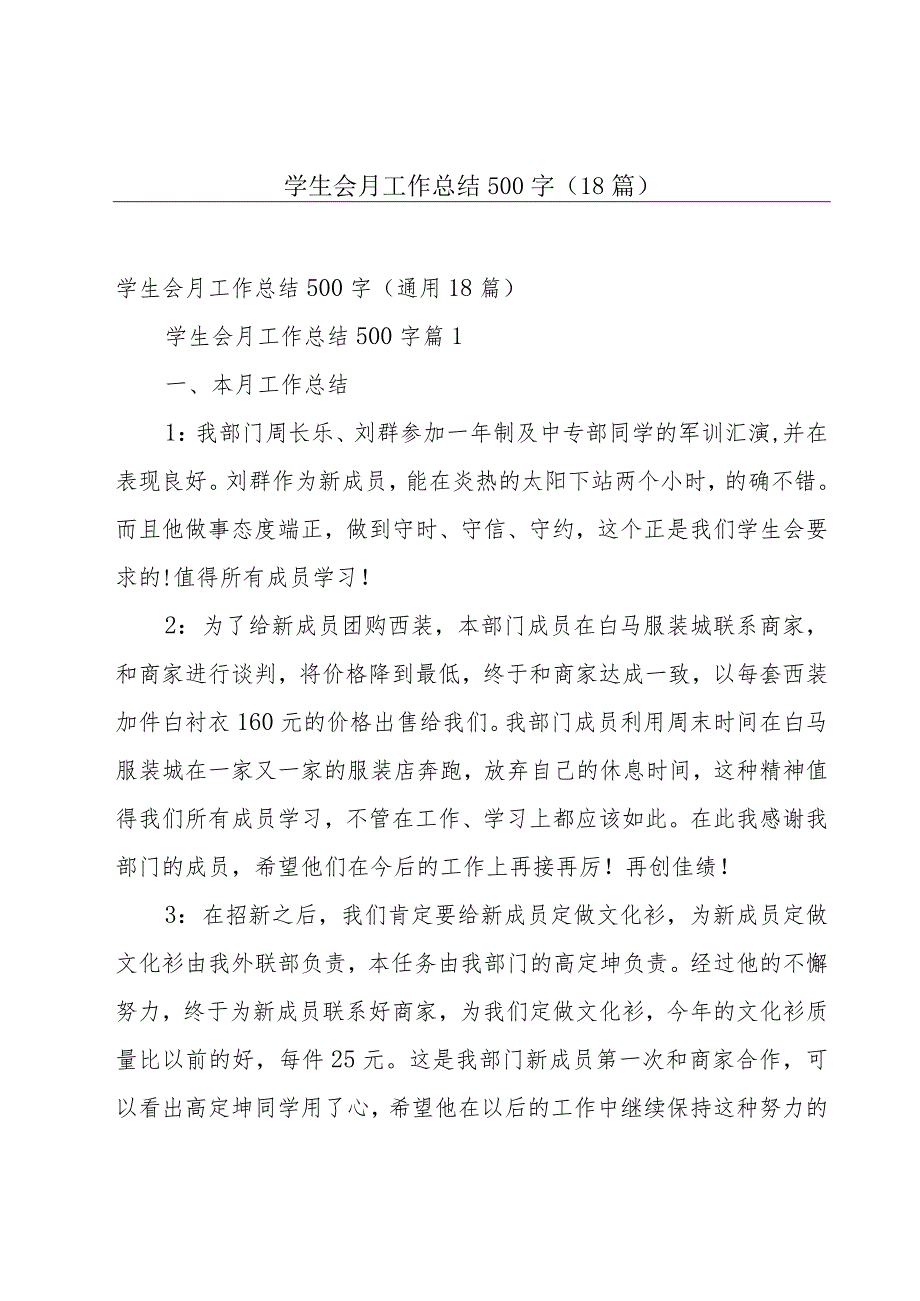 学生会月工作总结500字（18篇）
学生会月工作总结500字（通用18篇）
学生会月工作总结500字篇1
一、本月工作总结
1：我部门周长乐、刘群参加一年制及中专部同学的军训汇演,并在
表现良好。刘群作为新成员，能在炎热的太阳下站两个小时，的确不错。
而且他做事态度端正，做到守时、守信、守约，这个正是我们学生会要
求的!值得所有成员学习！
2：为了给新成员团购西装，本部门成员在白马服装城联系商家，
和商家进行谈判，将价格降到最低，终于和商家达成一致，以每套西装
加件白衬衣160元的价格出售给我们。我部门成员利用周末时间在白马
服装城在一家又一家的服装店奔跑，放弃自己的休息时间，这种精神值
得我们所有成员学习，不管在工作、学习上都应该如此。在此我感谢我
部门的成员，希望他们在今后的工作上再接再厉！再创佳绩！
3：在招新之后，我们肯定要给新成员定做文化衫，为新成员定做
文化衫由我外联部负责，本任务由我部门的高定坤负责。经过他的不懈
努力，终于为新成员联系好商家，为我们定做文化衫，今年的文化衫质
量比以前的好，每件25元。这是我部门新成员第一次和商家合作，可
以看出高定坤同学用了心，希望他在以后的工作中继续保持这种努力的